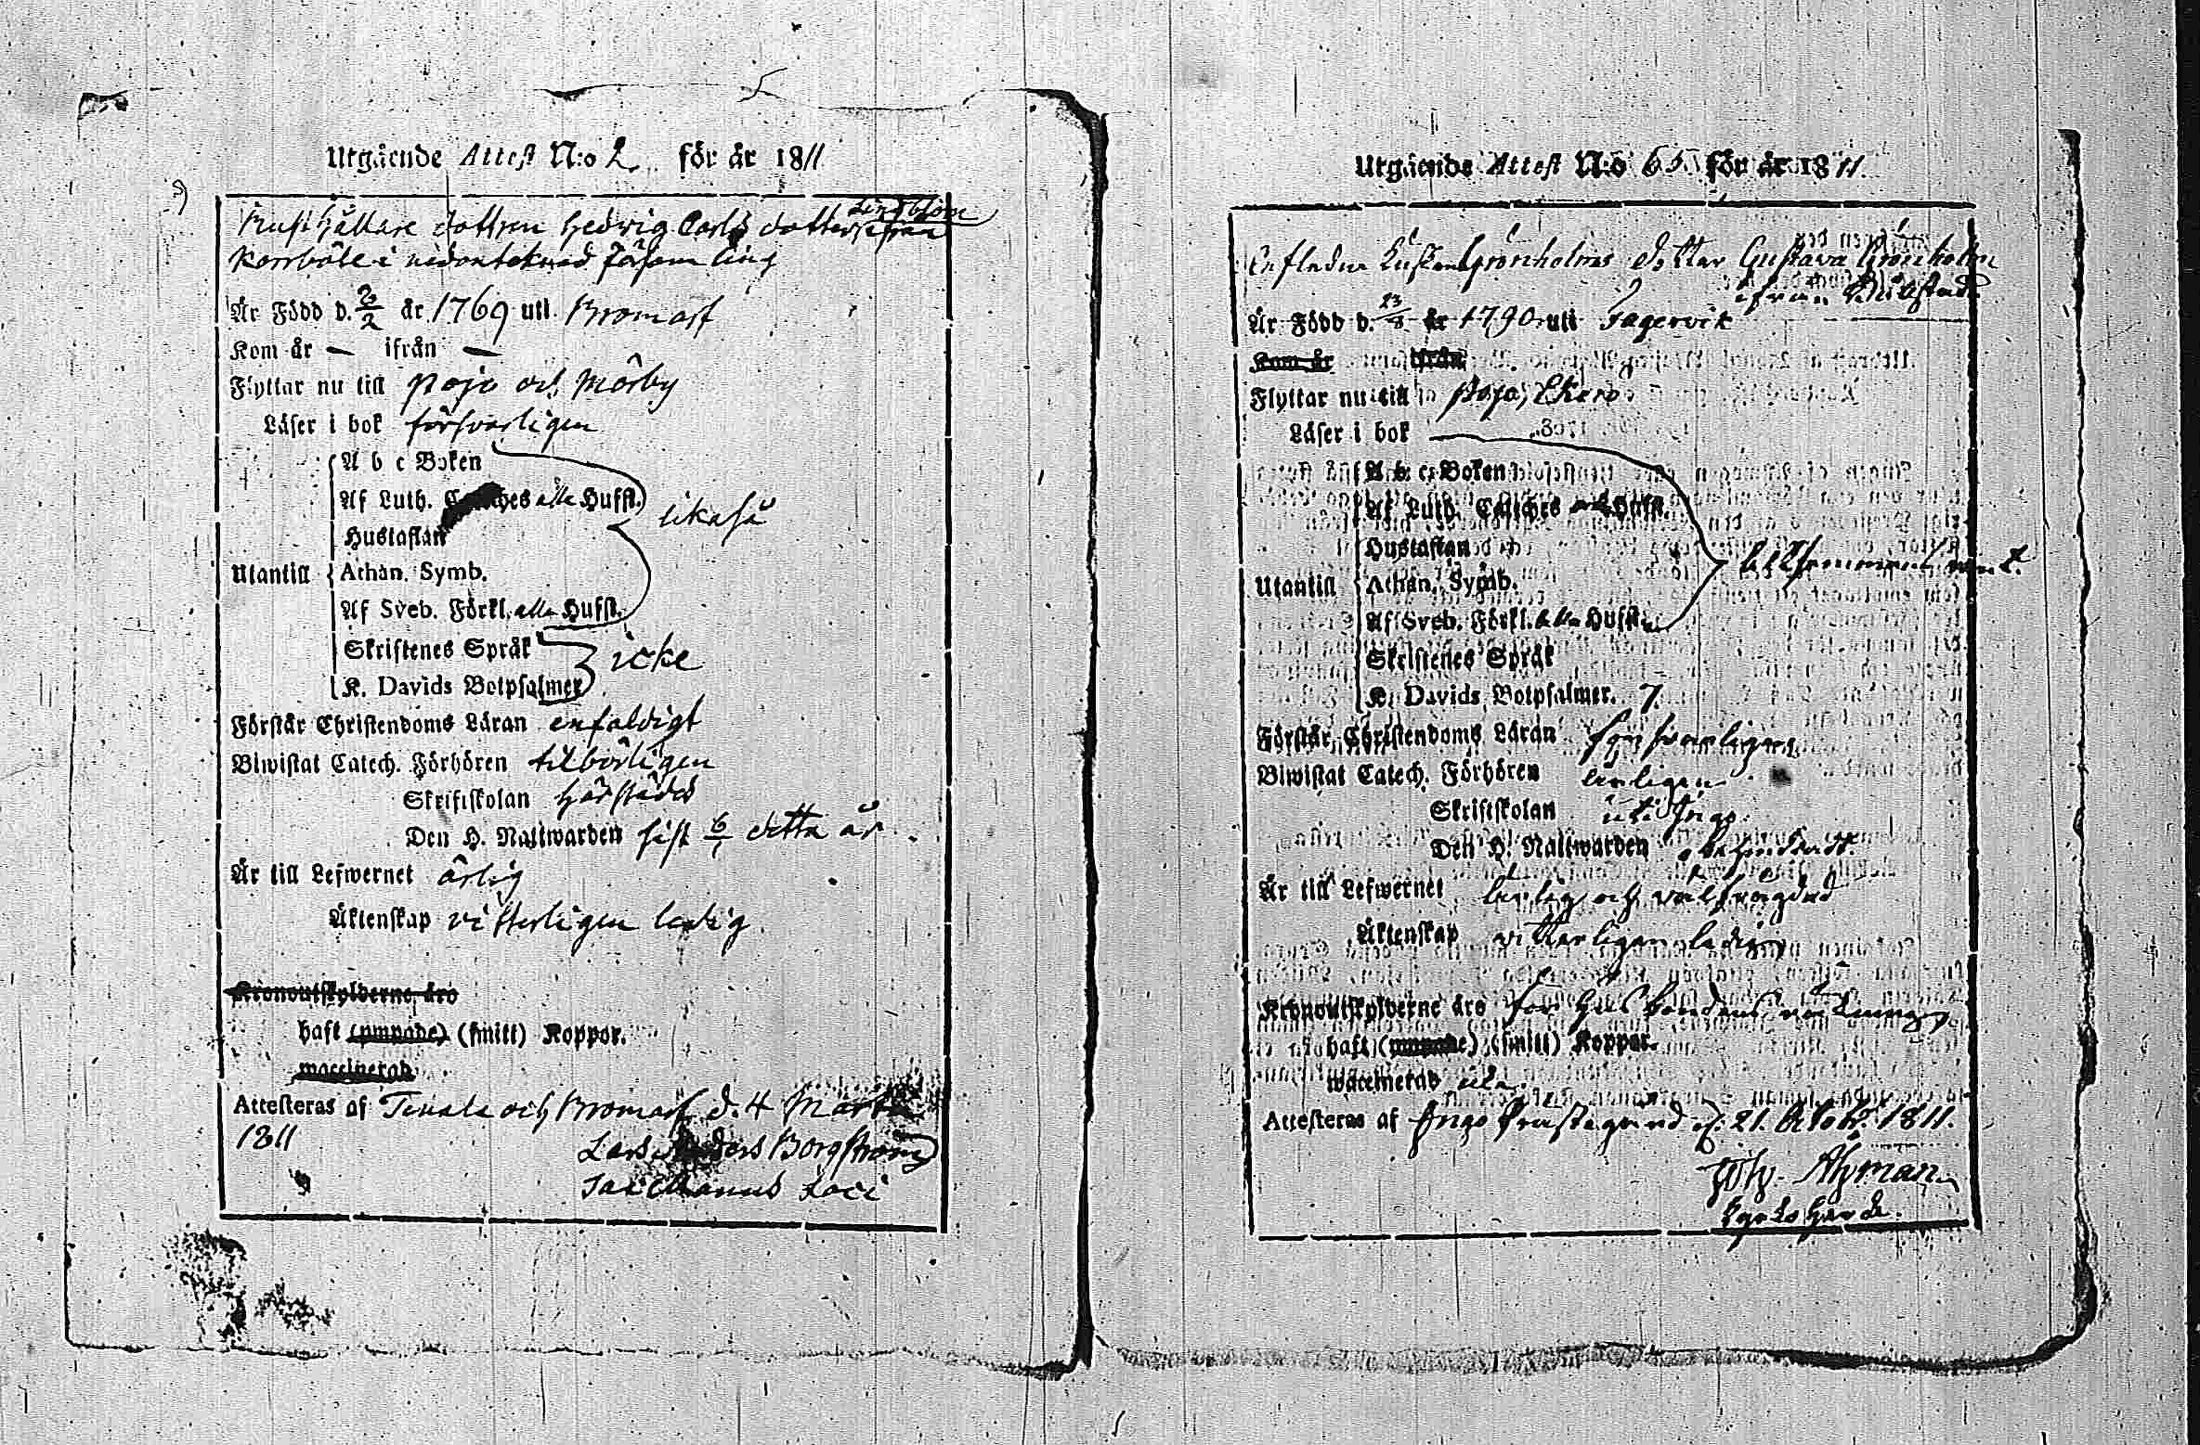 Utgående Attest N:o 2 för år 1811
Rusthållare dottren Hedvig Carls dotter Lindblom ifrån
Karrböle i nedanteknad Församling
Är Född d. 2/2 år 1769 uti Bromarf
Kom år — ifrån —
Flyttar nu till Pojo och Mörby
Läser i bok försvarligen
A b c Boken
Af Luth. Catches alla Hufst.
likaså
Hustaflan
Utantill
Athan. Symb.
Af Sveb. Förkl. alla Hufst.
Skriftenes Språk
icke
K. Davids Botpsalmer
Förstår Christendoms Läran enfaldigt
Biwistat Catech. Förhören tilbörligen
Skriftskolan härstädes
Den H. Nattwarden sist 6/1 detta år
Är till Lefwernet ärlig
Äktenskap vitterligen ledig
Kronoutskylderne äro
haft (ympade) (smitt) Koppor.
waccinerad
Attesteras af Tenala och Bromarf d. 4 Martii
1811
Lars Anders Borgström
Sacellanus Loci
Utgående Attest N:o 65 för år 1811.
dottar Gustava Grönholm
ifrån
Är Född d. 23/8 år 1790 uti Fagervik
Kom år ifrån
Flyttar nu till Pojo,
Läser i bok
A b c Boken
Af Luth. Catches alla Hufst.
Hustaflan
Utantill
Athan. Symb.
Af Sveb. Förkl. alla Hufst.
Skriftenes Språk
K. Davids Botpsalmer. 7.
Förstår Christendoms Läran försvarligen
Biwistat Catech. Förhören årligen
Skriftskolan uti Ingo
Den H. Nattwarden obehindradt
Är till Lefwernet ärlig och välfrägdad
Äktenskap vitterligen ledig
Kronoutskylderne äro för Husbondens räkning
haft (ympade) (smitt) Koppor.
waccinerad
Attesteras af Ingo Prästegård d. 21. Octobr. 1811.
Joh. Åhman